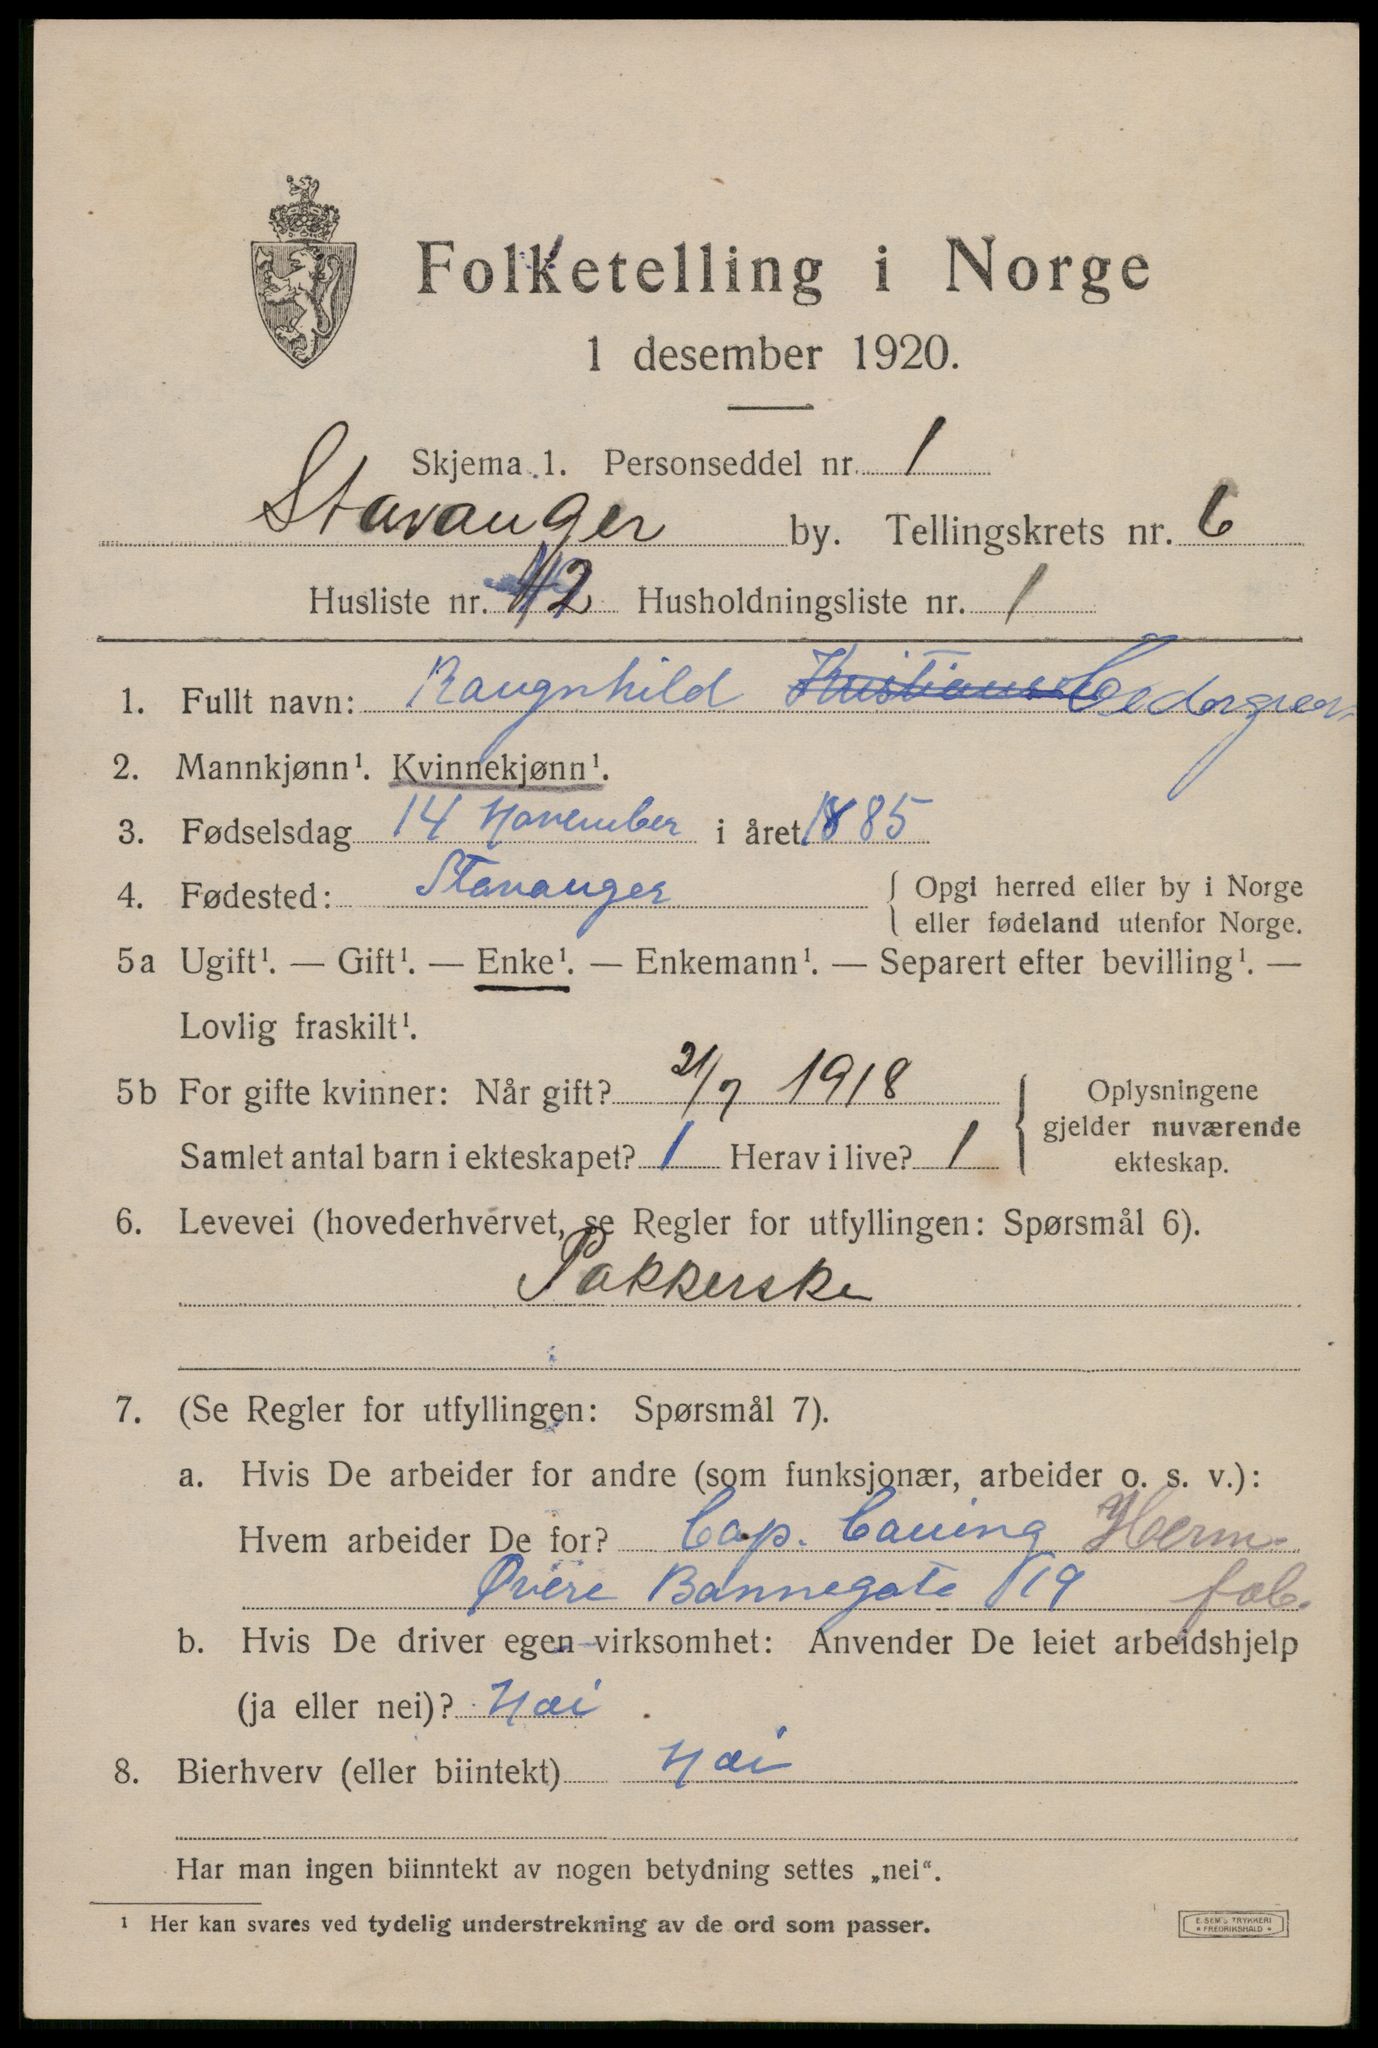 Folketelling i Norge
1 desember 1920.
Skjema 1. Personseddel nr. 1
Stavanger by. Tellingskrets nr. 6
Husliste nr. 42 Husholdningsliste nr. 1
1. Fullt navn: Raugnhild Kristianse Cedergren
2. Mannkjønn¹. Kvinnekjønn¹.
3. Fødselsdag 14 November i året 1885
4. Fødested: Stavanger { Opgi herred eller by i Norge
eller fødeland utenfor Norge.
5a Ugift¹. — Gift¹. — Enke¹. — Enkemann¹. — Separert efter bevilling¹. —
Lovlig fraskilt¹.
5b For gifte kvinner: Når gift? 21/7 1918
Samlet antal barn i ekteskapet? 1 Herav i live? 1
Oplysningene
gjelder nuværende
ekteskap.
6. Levevei (hovederhvervet, se Regler for utfyllingen: Spørsmål 6).
Pakkerske
7. (Se Regler for utfyllingen: Spørsmål 7).
a. Hvis De arbeider for andre (som funksjonær, arbeider o. s. v.):
Hvem arbeider De for? Cap. Caning Herm.
Øvere Bannegate 19 fab.
b. Hvis De driver egen virksomhet: Anvender De leiet arbeidshjelp
(ja eller nei)? Nei
8. Bierhverv (eller biintekt) Nei
Har man ingen biinntekt av nogen betydning settes „nei“.
¹ Her kan svares ved tydelig understrekning av de ord som passer.
E. SEM's TRYKKERI
* FREDRIKSHALD *